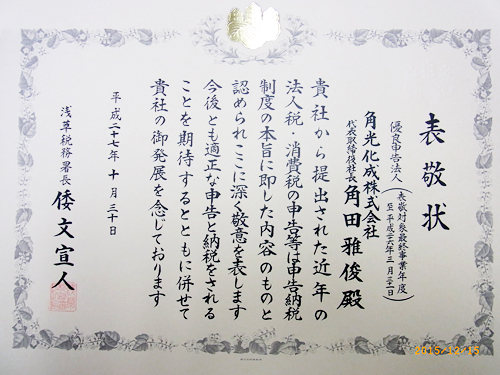 表敬状
優良申告法人
(表敬対象最終事業年度
至 平成二六年三月三一日)
角光化成株式会社
代表取締役社長 角田雅俊殿
貴社から提出された近年の
法人税・消費税の申告等は申告納税
制度の本旨に即した内容のものと
認められここに深く敬意を表します
今後とも適正な申告と納税をされる
ことを期待するとともに併せて
貴社の御発展を念じております
平成二十七年十月三十日
浅草税務署長 倭文宣人
2015/12/15